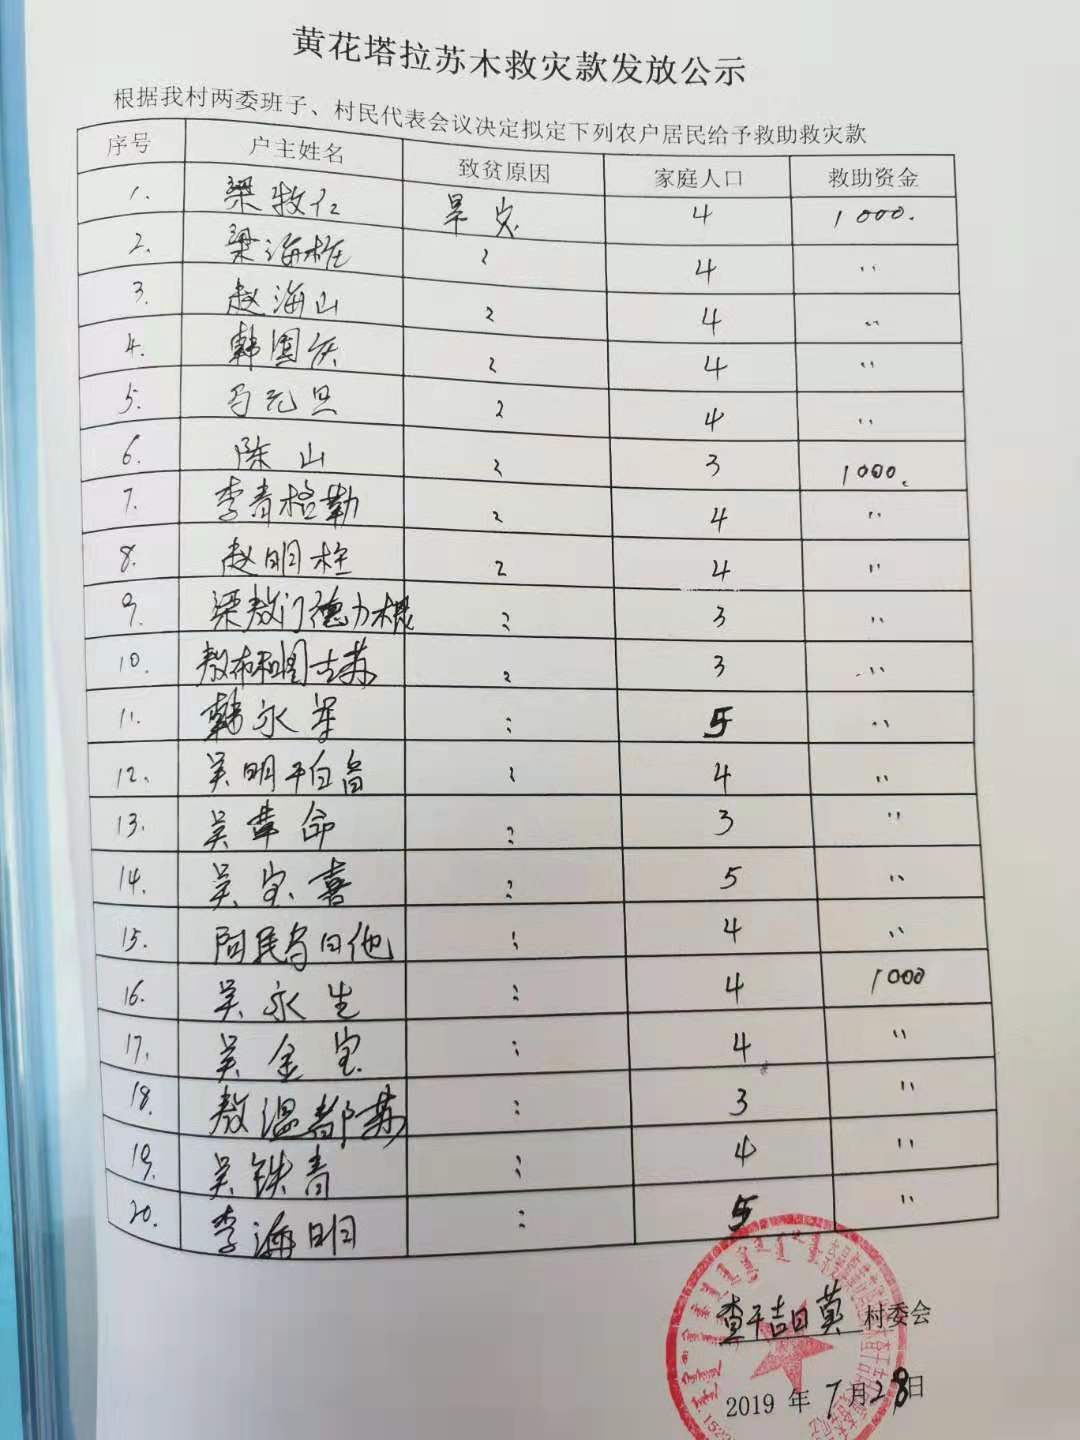 黄花塔拉苏木救灾款发放公示
根据我村两委班子、村民代表会议决定拟定下列农户居民给予救助救灾款
序号 户主姓名 致贫原因 家庭人口 救助资金
1. 梁牧仁 旱灾 4 1000.
2. 梁海桩 〃 4 〃
3. 赵海山 〃 4 〃
4. 韩国庆 〃 4 〃
5. 马元旦 〃 4 〃
6. 陈山 〃 3 1000.
7. 李青格勒 〃 4 〃
8. 赵明柱 〃 4 〃
9. 梁敖门德力根 〃 3 〃
10. 敖布和图古苏 〃 3 〃
11. 韩永军 〃 5 〃
12. 吴明干白音 〃 4 〃
13. 吴革命 〃 3 〃
14. 吴宝喜 〃 5 〃
15. 阿民乌日他 〃 4 〃
16. 吴永生 〃 4 1000
17. 吴金宝 〃 4 〃
18. 敖温都苏 〃 3 〃
19. 吴铁青 〃 4 〃
20. 李海明 〃 5 〃
查干吉日莫 村委会
2019 年 7 月 28 日